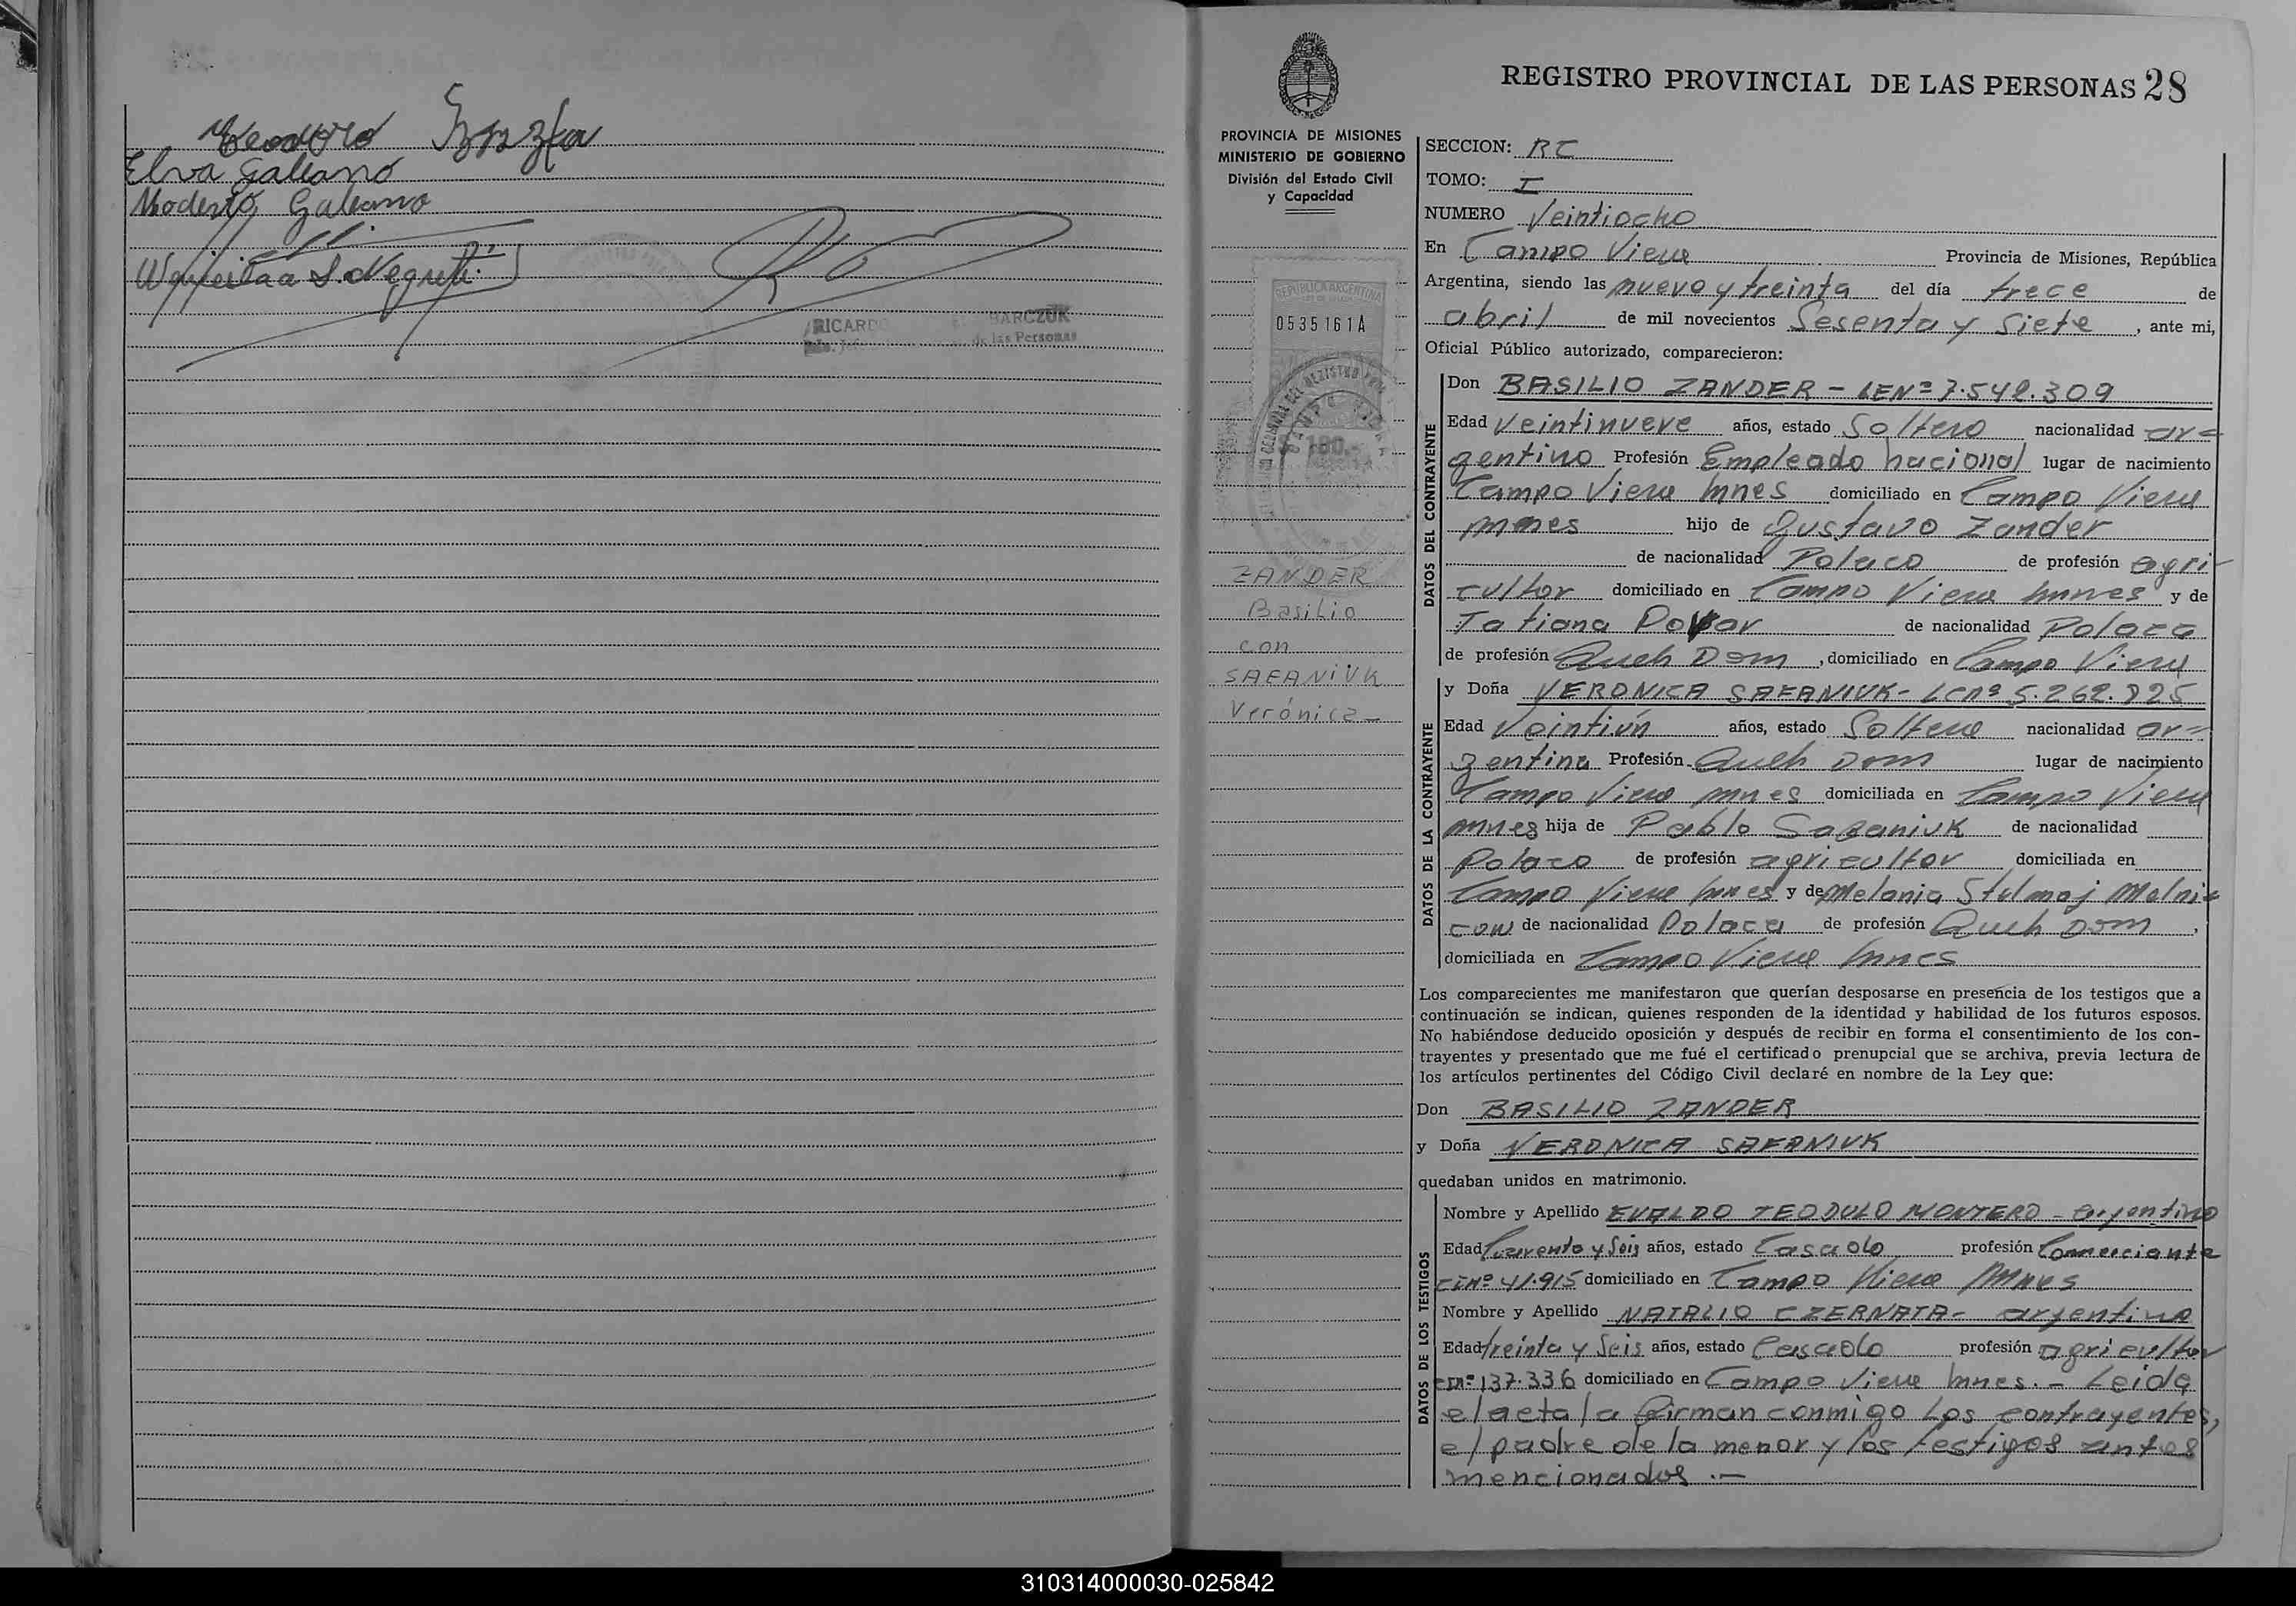 Teodoro
Elva Galeano
Modesto Galeano
RICARDO
de las Personas
REGISTRO PROVINCIAL DE LAS PERSONAS 28
PROVINCIA DE MISIONES
MINISTERIO DE GOBIERNO
División del Estado Civil
y Capacidad
REPUBLICA ARGENTINA
0535161A
ZANDER
Basilio
con
SAFANIUK
Verónica
SECCION: RC
TOMO: I
NUMERO Veintiocho
En Campo Viera Provincia de Misiones, República
Argentina, siendo las nueve y treinta del día trece de
abril de mil novecientos Sesenta y Siete, ante mi,
Oficial Público autorizado, comparecieron:
DATOS DEL CONTRAYENTE
Don BASILIO ZANDER - LENº 7.542.309
Edad Veintinueve años, estado Soltero nacionalidad ar=
gentino Profesión Empleado nacional lugar de nacimiento
Campo Viera Mnes domiciliado en Campo Viera
Mnes hijo de Gustavo Zander
de nacionalidad Polaco de profesión agri-
cultor domiciliado en Campo Viera Mnes y de
Tatiana de nacionalidad Polaca
de profesión Queh Dom, domiciliado en Campo Viera
DATOS DE LA CONTRAYENTE
y Doña VERONICA SAFANIUK - LCNº 5.262.825
Edad Veintiún años, estado Soltera nacionalidad ar=
gentina Profesión Queh Dom lugar de nacimiento
Campo Viera Mnes domiciliada en Campo Viera
Mnes hija de Pablo Safaniuk de nacionalidad
Polaco de profesión agricultor domiciliada en
Campo Viera Mnes y de Melania Stulmaj Melni=
cow de nacionalidad Polaca de profesión Queh Dom,
domiciliada en Campo Viera Mnes
Los comparecientes me manifestaron que querían desposarse en presencia de los testigos que a
continuación se indican, quienes responden de la identidad y habilidad de los futuros esposos.
No habiéndose deducido oposición y después de recibir en forma el consentimiento de los con-
trayentes y presentado que me fué el certificado prenupcial que se archiva, previa lectura de
los artículos pertinentes del Código Civil declaré en nombre de la Ley que:
Don BASILIO ZANDER
y Doña VERONICA SAFANIUK
quedaban unidos en matrimonio.
DATOS DE LOS TESTIGOS
Nombre y Apellido EVALDO TEODULO MONTERO - argentino
Edad Cuarenta y Seis años, estado Casado profesión Comerciante
CINº 41.915 domiciliado en Campo Viera Mnes
Nombre y Apellido NATALIO CZERNATA - argentino
Edad treinta y Seis años, estado Casado profesión agricultor
CINº 137.336 domiciliado en Campo Viera Mnes. - Leida
el acta la firman conmigo los contrayentes,
el padre de la menor y los testigos antes
mencionados .-
310314000030-025842